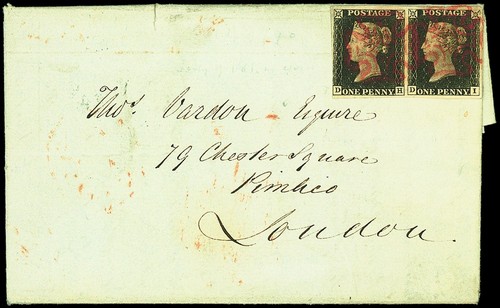 POSTAGE POSTAGE
D H D I
ONE PENNY ONE PENNY
Thos. Vardon Esquire
79 Chester Square
Pimlico
London.